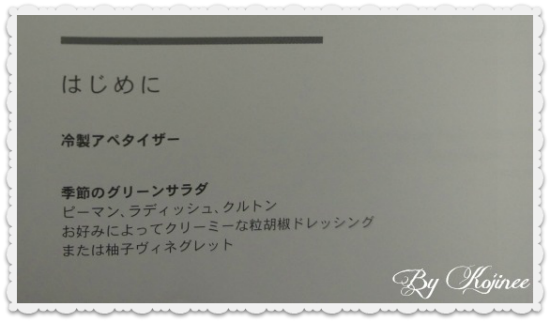 はじめに
冷製アペタイザー
季節のグリーンサラダ
ピーマン、ラディッシュ、クルトン
お好みによってクリーミーな粒胡椒ドレッシング
または柚子ヴィネグレット
By Kojinee